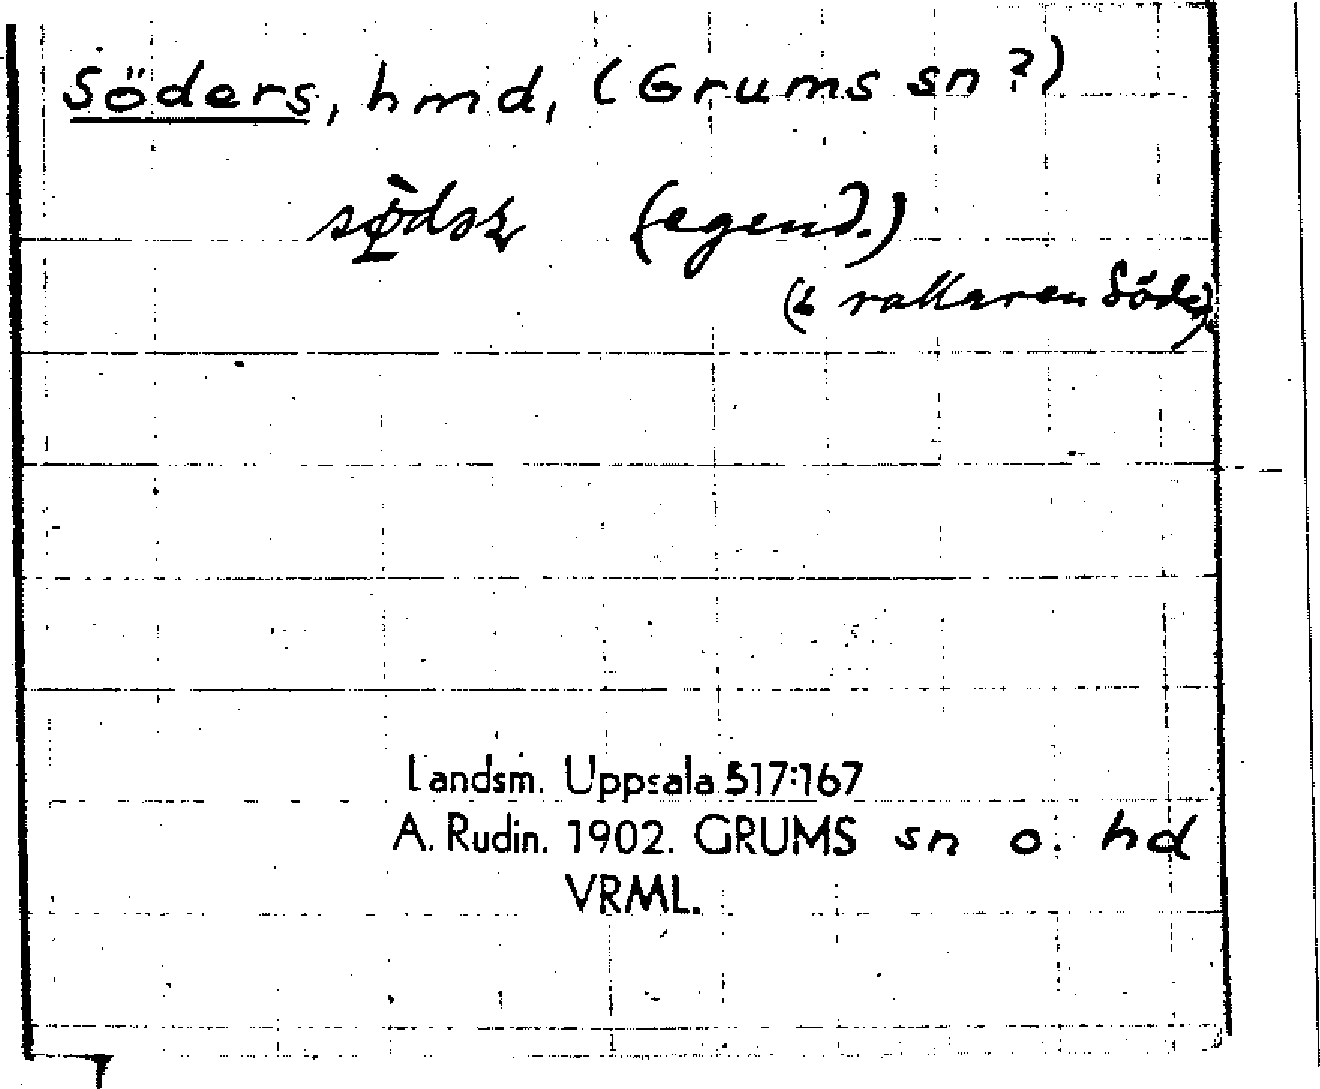 Söders, hmd, (Grums sn?)
(egend.)
rallaren Söder)
Landsm. Uppsala 517:167
A. Rudin. 1902. GRUMS sn o. hd
VRML.